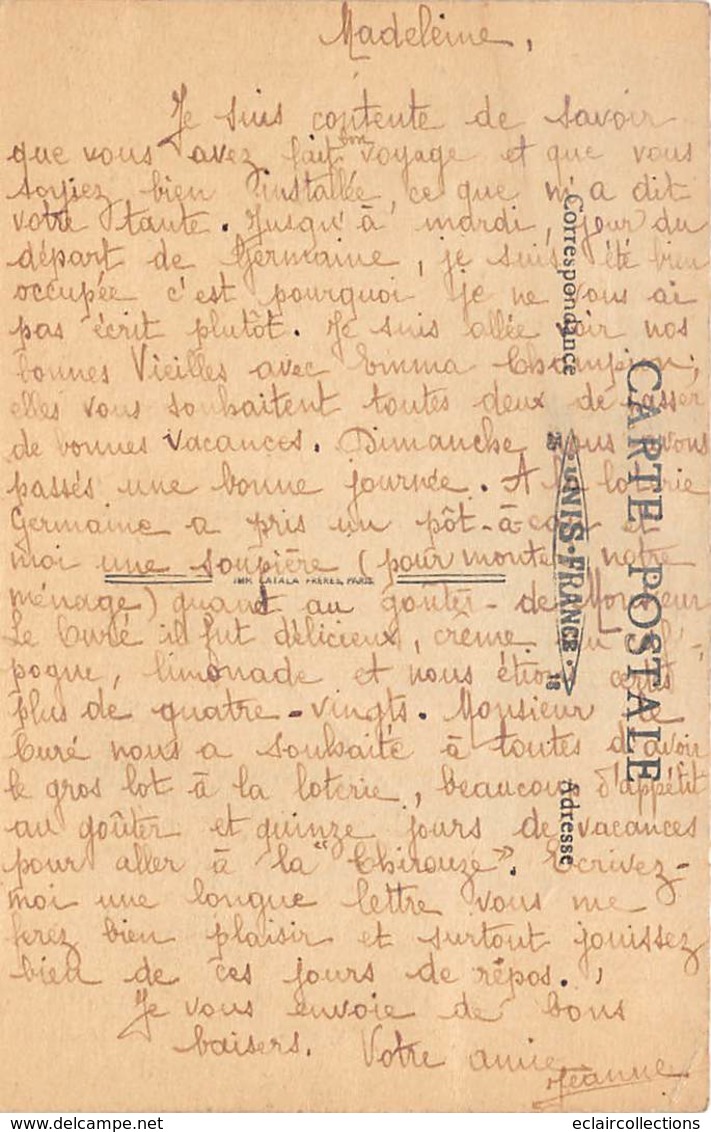 Madeleine,
Je suis contente de savoir
que vous avez fait bon voyage et que vous
soyiez bien installée, ce que m'a dit
votre tante. Jusqu'à mardi, jour du
départ de Germaine, je suis été bien
occupée c'est pourquoi je ne vous ai
pas écrit plutôt. Je suis allée voir nos
bonnes Vieilles avec Emma Champion;
elles vous souhaitent toutes deux de passer
de bonnes vacances. Dimanche nous avons
passés une bonne journée. A la loterie
Germaine a pris un pôt-à-eau et
moi une soupière (pour monter notre
ménage) quant au goûter de Monsieur
Le Curé il fut délicieux, crême
pogne, limonade et nous étions certes
plus de quatre-vingts. Monsieur le
Curé nous a souhaité à toutes d'avoir
le gros lot à la loterie, beaucoup d'appétit
au goûter et quinze jours de vacances
pour aller à la "Chirouze". Ecrivez-
moi une longue lettre vous me
ferez bien plaisir et surtout jouissez
bien de ces jours de repos.
Je vous envoie de bons
baisers. Votre amie
Jeanne
CARTE POSTALE
Correspondance
Adresse
UNIS-FRANCE
18
IMP. CATALA FRÈRES, PARIS
eclaircollections